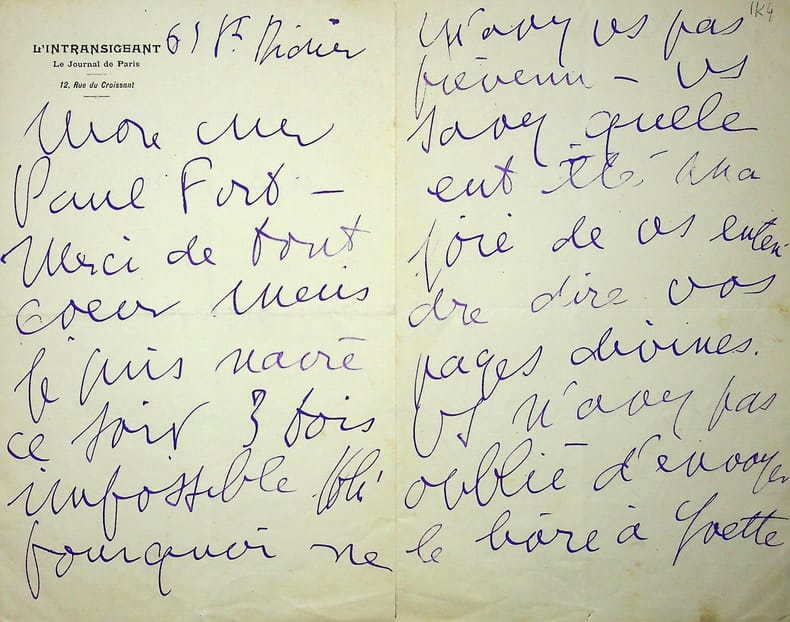 L'INTRANSIGEANT
Le Journal de Paris
12, Rue du Croissant
61 St Didier
Mon cher
Paul Fort —
Merci de tout
coeur mais
je suis navré
ce soir 3 fois
impossible Oh!
pourquoi ne
m'avez vs pas
prévenu — vs
savez quelle
eut été ma
joie de vs enten
dre dire vos
pages divines.
Vs n'avez pas
oublié d'envoyer
le livre à Yvette
1K4